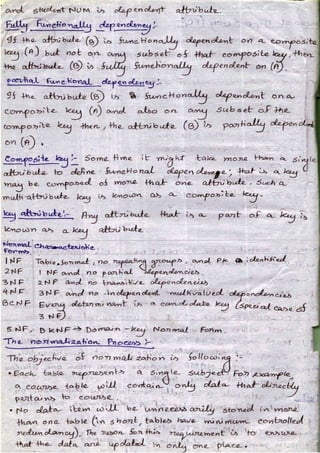 and student NUM is dependent attribute.
Fully Functionally dependency:-
If the attribute (B) is functionally dependent on a composite
key (A) but not on any subset of that composite key, then
the attribute (B) is fully functionally dependent on (A).
partial Functional dependency:-
If the attribute (B) is functionally dependent on a
composite key (A) and also on any subset of the
composite key then, the attribute (B) is partially dependent
on (A).
Composite key:- Some time it might take more than a single
attribute to define functional dependency, that is a key
may be composed of more that one attribute. Such a
multi-attribute key is known as a composite key.
key attribute:- Any attribute that is a part of a key is
known as a key attribute.
Normal Characteristic
Forms
1NF Table format, no repeating groups, and PK identified
2NF 1NF and no partial dependencies.
3NF 2NF and no transitive dependencies
4NF 3NF and no independent multivalued dependencies
BCNF Every determinant is a candidate key (special case of
3NF)
5NF, DKNF → Domain-key Normal Form
The normalization Process:-
The objective of normalization is following:-
• Each table represents a single subject For example,
a course table will contain only data that directly
pertains to course.
• No data item will be unnecessarily stored in more
than one table (in short, tables have minimum controlled
redundancy), The reason for this requirement is to ensure
that the data are updated in only one place.